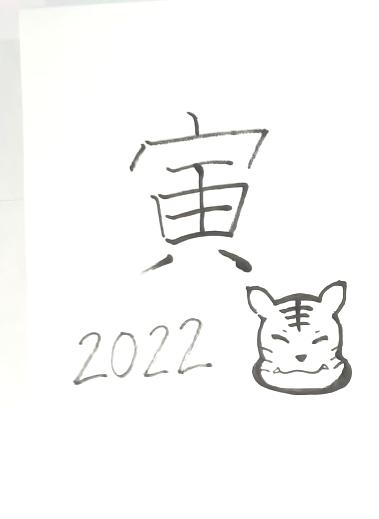 寅
2022